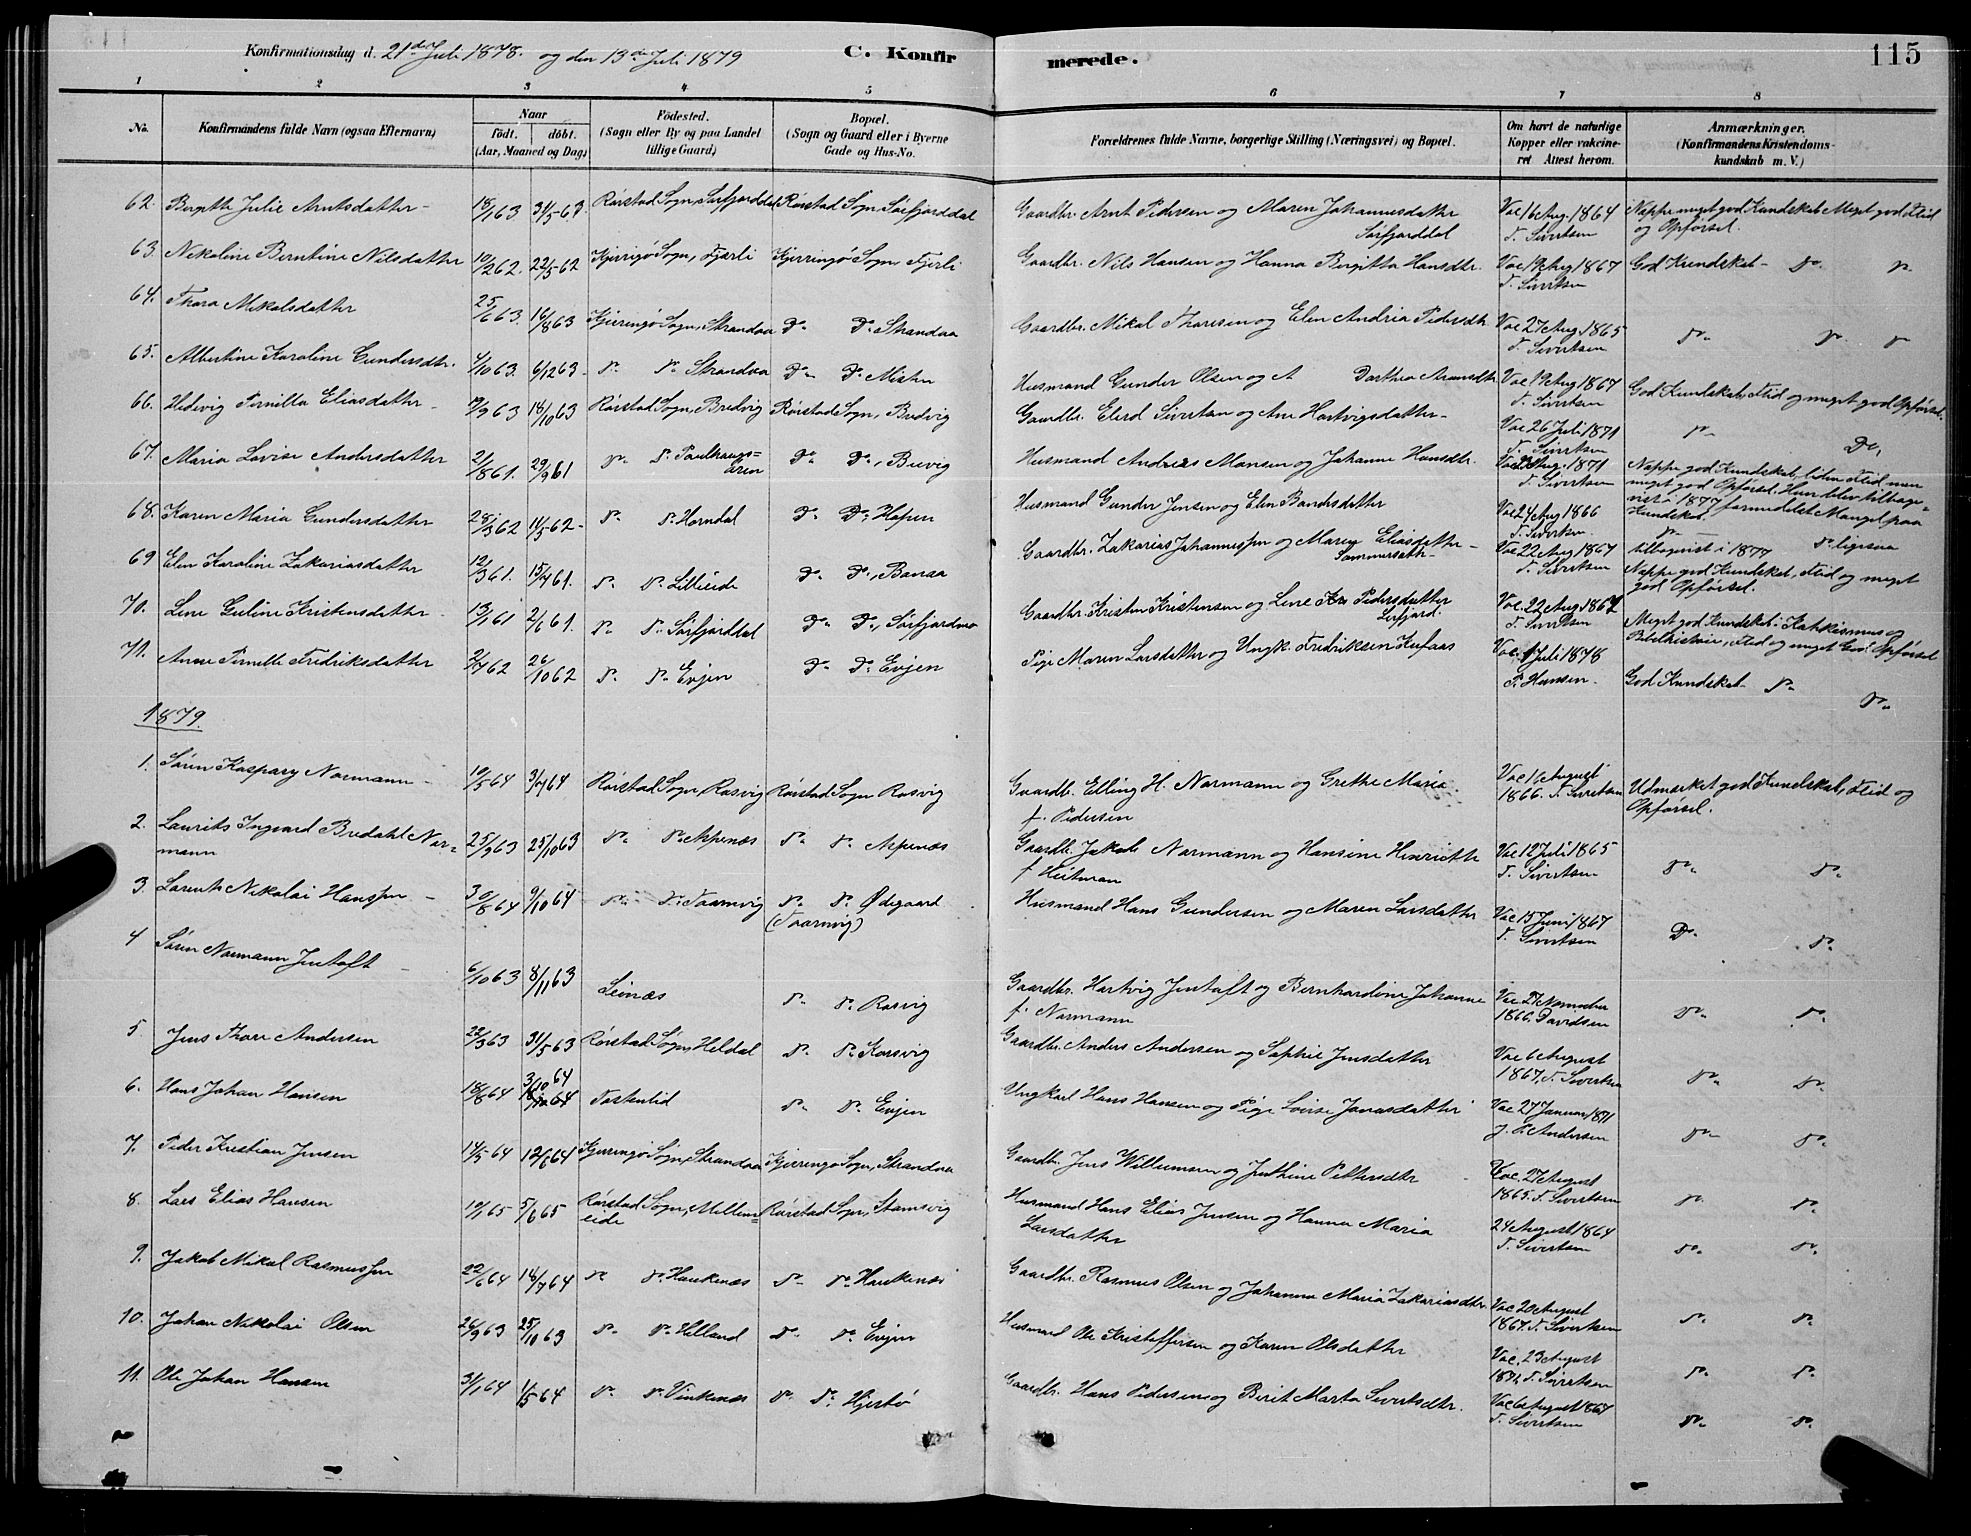 Konfirmationsdag d. 21de Juli 1878. og den 13de Juli 1879 C. Konfirmerede. 115
1 2 3 4 5 6 7 8
No. Konfirmandens fulde Navn (ogsaa Efternavn) Naar født. døbt. (Aar, Maaned og Dag) Födested. (Sogn eller By og paa Landet tillige Gaard) Bopæl. (Sogn og Gaard eller i Byerne Gade og Hus-No. Forældrenes fulde Navne, borgerlige Stilling (Næringsvei) og Bopæl. Om havt de naturlige Kopper eller vakcineret Attest herom. Anmærkninger. (Konfirmandens Kristendomskundskab m. V.)
62. Birgitte Julie Arntsdatter - 18/1 63 31/5 63. Rørstad Sogn, Sørfjorddal Rørstad Sogn Sørfjorddal Gaardbr. Arnt Pedersen og Maren Johannesdatter Sørfjorddal Vac 16 Aug. 1864 T. Sivertsen Nappe meget god Kundskab Meget god Flid og Opførsel.
63. Nikoline Berntine Nilsdatter 10/2 62. 22/5 62 Kjerringø Sogn, Fjærli Kjerringø Sogn, Fjerli Gaardbr. Nils Hansen og Hanna Birgitta Hansdtr. Vac 19 Aug 1867 T. Sivertsen God Kundskab - Do. Do.
64. Thora Mikalsdatter 25/6 63. 16/8 63 Kjerringø Sogn, Strandaa Do Do Strandaa Gaardbr. Mikal Tharesen og Elen Andria Pedersdtr Vac 27 Aug. 1865 T. Sivertsen Do Do Do
65. Albertine Karoline Gundersdtr. 4/10 63. 6/12 63 - Do Do Strandaa Do Do Misten Husmand Gunder Olsen og A Dorthea Aronsdtr Vac 19 Aug 1867 T. Sivertsen God Kundskab, Flid og meget god Opførsel.
66. Hedevig Pernilla Eliasdatter - 9/9 63 18/10 63 Rørstad Sogn, Bredvig Rørstad Sogn, Bredvig Gaardbr. Elerd Sivertsen og Ane Hartvigsdatter - Vac 26 Juli 1871 T. Sivertsen Do Do,
67. Maria Lovise Andersdatter 2/8 61. 29/9 61 Do Do Poulhaugsøren Do Do, Brevig Husmand Andreas Monsen og Johanne Hansdtr. Vac Aug. 1871 T. Sivertsen Nappe god Kundskab, liden Flid men meget god Opførsel. Hun blev tilbagevist i 1877 formedelst Mangel paa Kundskab.
68. Karen Maria Gundersdatter 28/3 62 11/5 62 - Do Do Horndal Do Do, Hopen Husmand Gunder Jensen og Elen Baardsdatter Vac 24 Aug 1866 T. Sivertsen Do Do ligesaa tilbagevist i 1877
69 Elen Karoline Zakariasdatter 12/3 61. 15/4 61. Do Do Lilleeide Do Do, Bonaa Gaardbr. Zakarias Johannessen og Maren Eliasdatter - Sommerseth Vac 22 Aug 1867 T. Sivertsen Nappe god Kundskab, Flid og meget god Opførsel.
70. Lene Guline Kristensdatter - 13/1 61 2/6 61. Do Do Sørfjorddal Do Do, Sørfjordmo Gaardbr Kristen Kristensen og Lene Pedersdatter Sørfjord. Vac. 22 Aug 1867 T. Sivertsen Meget god Kundskab i Katekismus og Bibelhistorie, Flid og meget God Opførsel
71. Anne Pernille Fredriksdatter 2/7 62 26/10 62 Do Do Evjen Do Do Evjen Pige Maren Larsdatter og Ungk. Fredriksen Kufaas Vac. Juli 1878 P. Hansen. God Kundskab Do Do
1879.
1. Søren Kaspary Normann - 10/5 64 3/7 64 Rørstad Sogn, Rosvig Rørstad Sogn Rosvig Gaardb. Elling H. Normann og Grethe Maria f. Pedersen Vac 16 August 1866. T. Sivertsen Udmærket god Kundskab, Flid og Opførsel.
2. Laurits Ingvard Bredahl Normann 25/9 63 25/10 63 Do Do Aspenæs Do Do Aspenæs Gaardb. Jakob Normann og Hansine Henriette f Heitman Vac 12 Juli 1865 T. Sivertsen Do Do
3. Lorents Nikolai Hanssen - 30/8 64 9/10 64 Do Do Taarnvig Do Do Ødegaard (Taarnvig) Husmand Hans Gundersen og Maren Larsdatter Vac 15 Juni 1867 T. Sivertsen Do Do
4 Søren Normann Jentoft - 6/10 63 8/11 63 Leinæs Do Do Rosvig Gaardbr. Hartvig Jentoft og Bernhardine Johanne f. Normann Vac 27 November 1866. Davidsen Do Do
5. Jens Thore Andersen 22/3 63 31/5 63 Rørstad Sogn, Heldal Do Do Korsvig Gaardbr. Anders Andersen og Sophie Jensdatter Vac 6 August 1867, T. Sivertsen Do Do
6. Hans Johan Hansen 18/8 64 3/10 64 Tostenlid Do Do Evjen Ungkarl Hans Hansen og Pige Lovise Jonasdatter Vac 27 Januar 1871 J. P. Andersen Do Do
7. Peder Kristian Jensen 14/5 64 12/6 64 Kjerringø Sogn, Strandaa Kjerringø Sogn, Strandaa Gaardb. Jens Willumsen og Jenthine Peltersdtr Vac. 27 August 1865. T. Sivertsen Do Do
8. Lars Elias Hansen 10/1 65 5/6 65 Rørstad Sogn, Mellemeide Rørstad Sogn, Stamsvig Husmand Hans Elias Jensen og Hanna Maria Larsdatter 24 August 1864 T. Sivertsen Do Do
9. Jakob Mikal Rasmussen 22/6 64 18/7 64 Do Do Haukenæs Do Do Haukenæs Gaardbr. Rasmus Olsen og Johanna Maria Zakariasdtr. Vac 20 August 1867. T. Sivertsen Do Do
10. Johan Nikolai Olsen 26/9 63 25/10 63 Do Do Helland Do Do Evjen Husmand Ole Kristoffersen og Karen Olsdatter Vac. 23 August 1871 T. Sivertsen Do Do
11. Ole Johan Hansen 31/1 64 1/5 64 Do Do Vinkenæs Do Do Hjertø Gaardbr. Hans Pedersen og Berit Marta Sivertsdtr. Vac 6 August 1867 T. Sivertsen Do Do